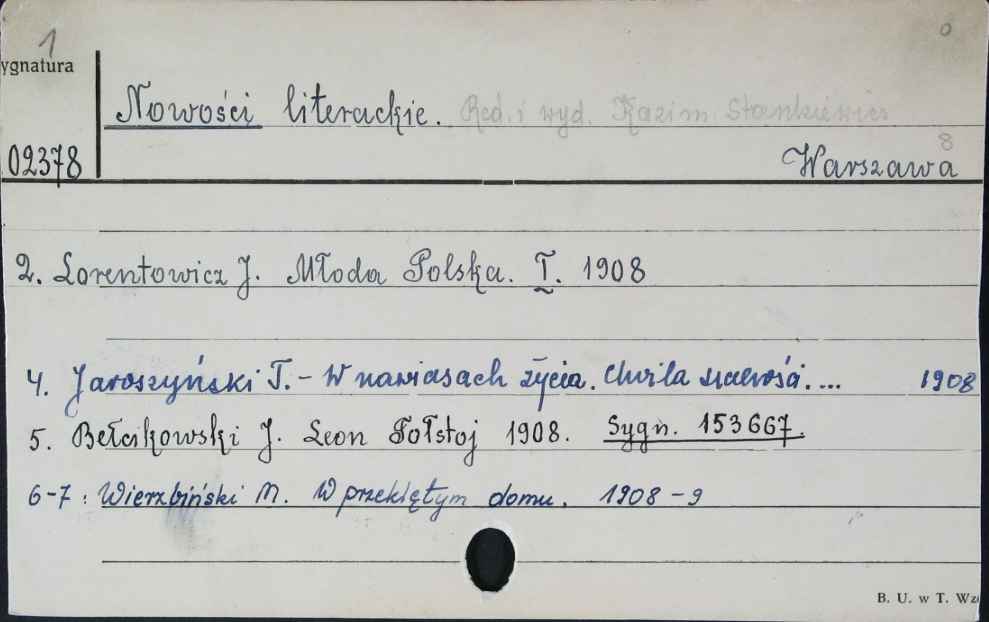 1
0
ygnatura
Nowości literackie. Red. i wyd. Kazim. Stankiewicz
8
02378 Warszawa
2. Lorentowicz J. Młoda Polska. I. 1908
4. Jaroszyński T. - W nawiasach życia. Chwila .... 1908
5. Bełcikowski J. Leon Tołstoj 1908. Sygn. 153667.
6-7: Wierzbiński M. W przeklętym domu. 1908-9
B. U. w T. Wz